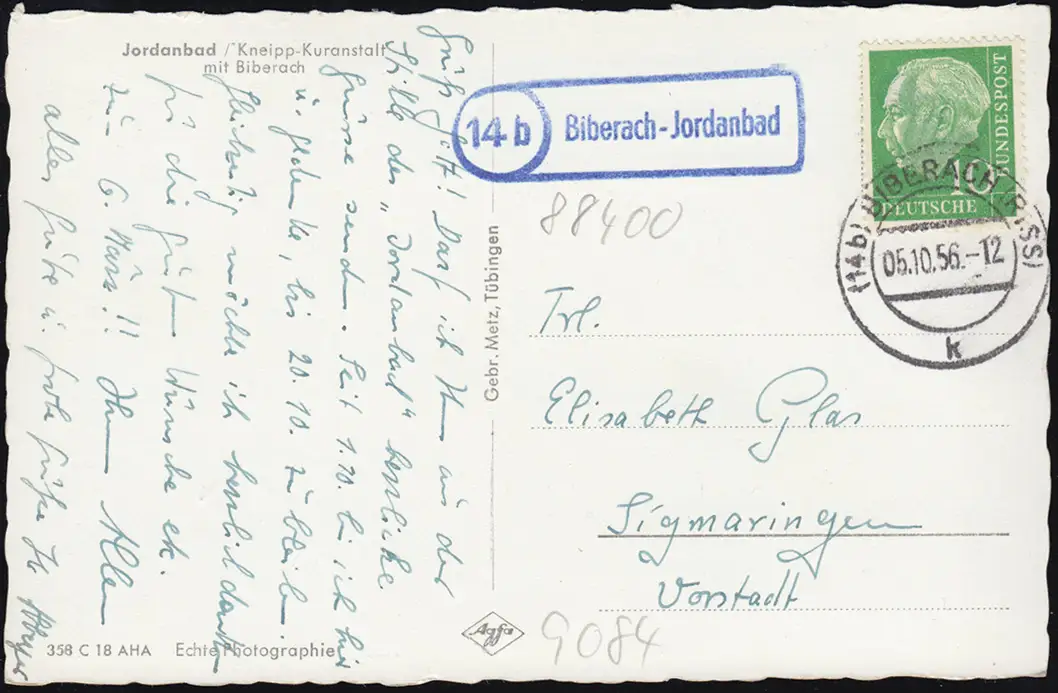 Jordanbad / Kneipp-Kuranstalt
mit Biberach
Grüß Gott! Darf ich Ihnen aus der
Stille des „Jordanbad" herzliche
Grüsse senden. Seit 1.10. bin ich hier
u. gedenke, bis 20.10. zu bleiben.
Gleichzeitig möchte ich herzlich danken
für die guten Wünsche etc.
zum 6. März!! Ihnen Allen
alles Gute u. frohe Grüße
358 C 18 AHA
Echte Photographie
Gebr. Metz, Tübingen
Agfa
14 b
Biberach-Jordanbad
10
DEUTSCHE
BUNDESPOST
(14b) BIBERACH (RISS)
05.10.56.-12
k
88400
Frl.
Elisabeth Glas
Sigmaringen
Vorstadt
9084